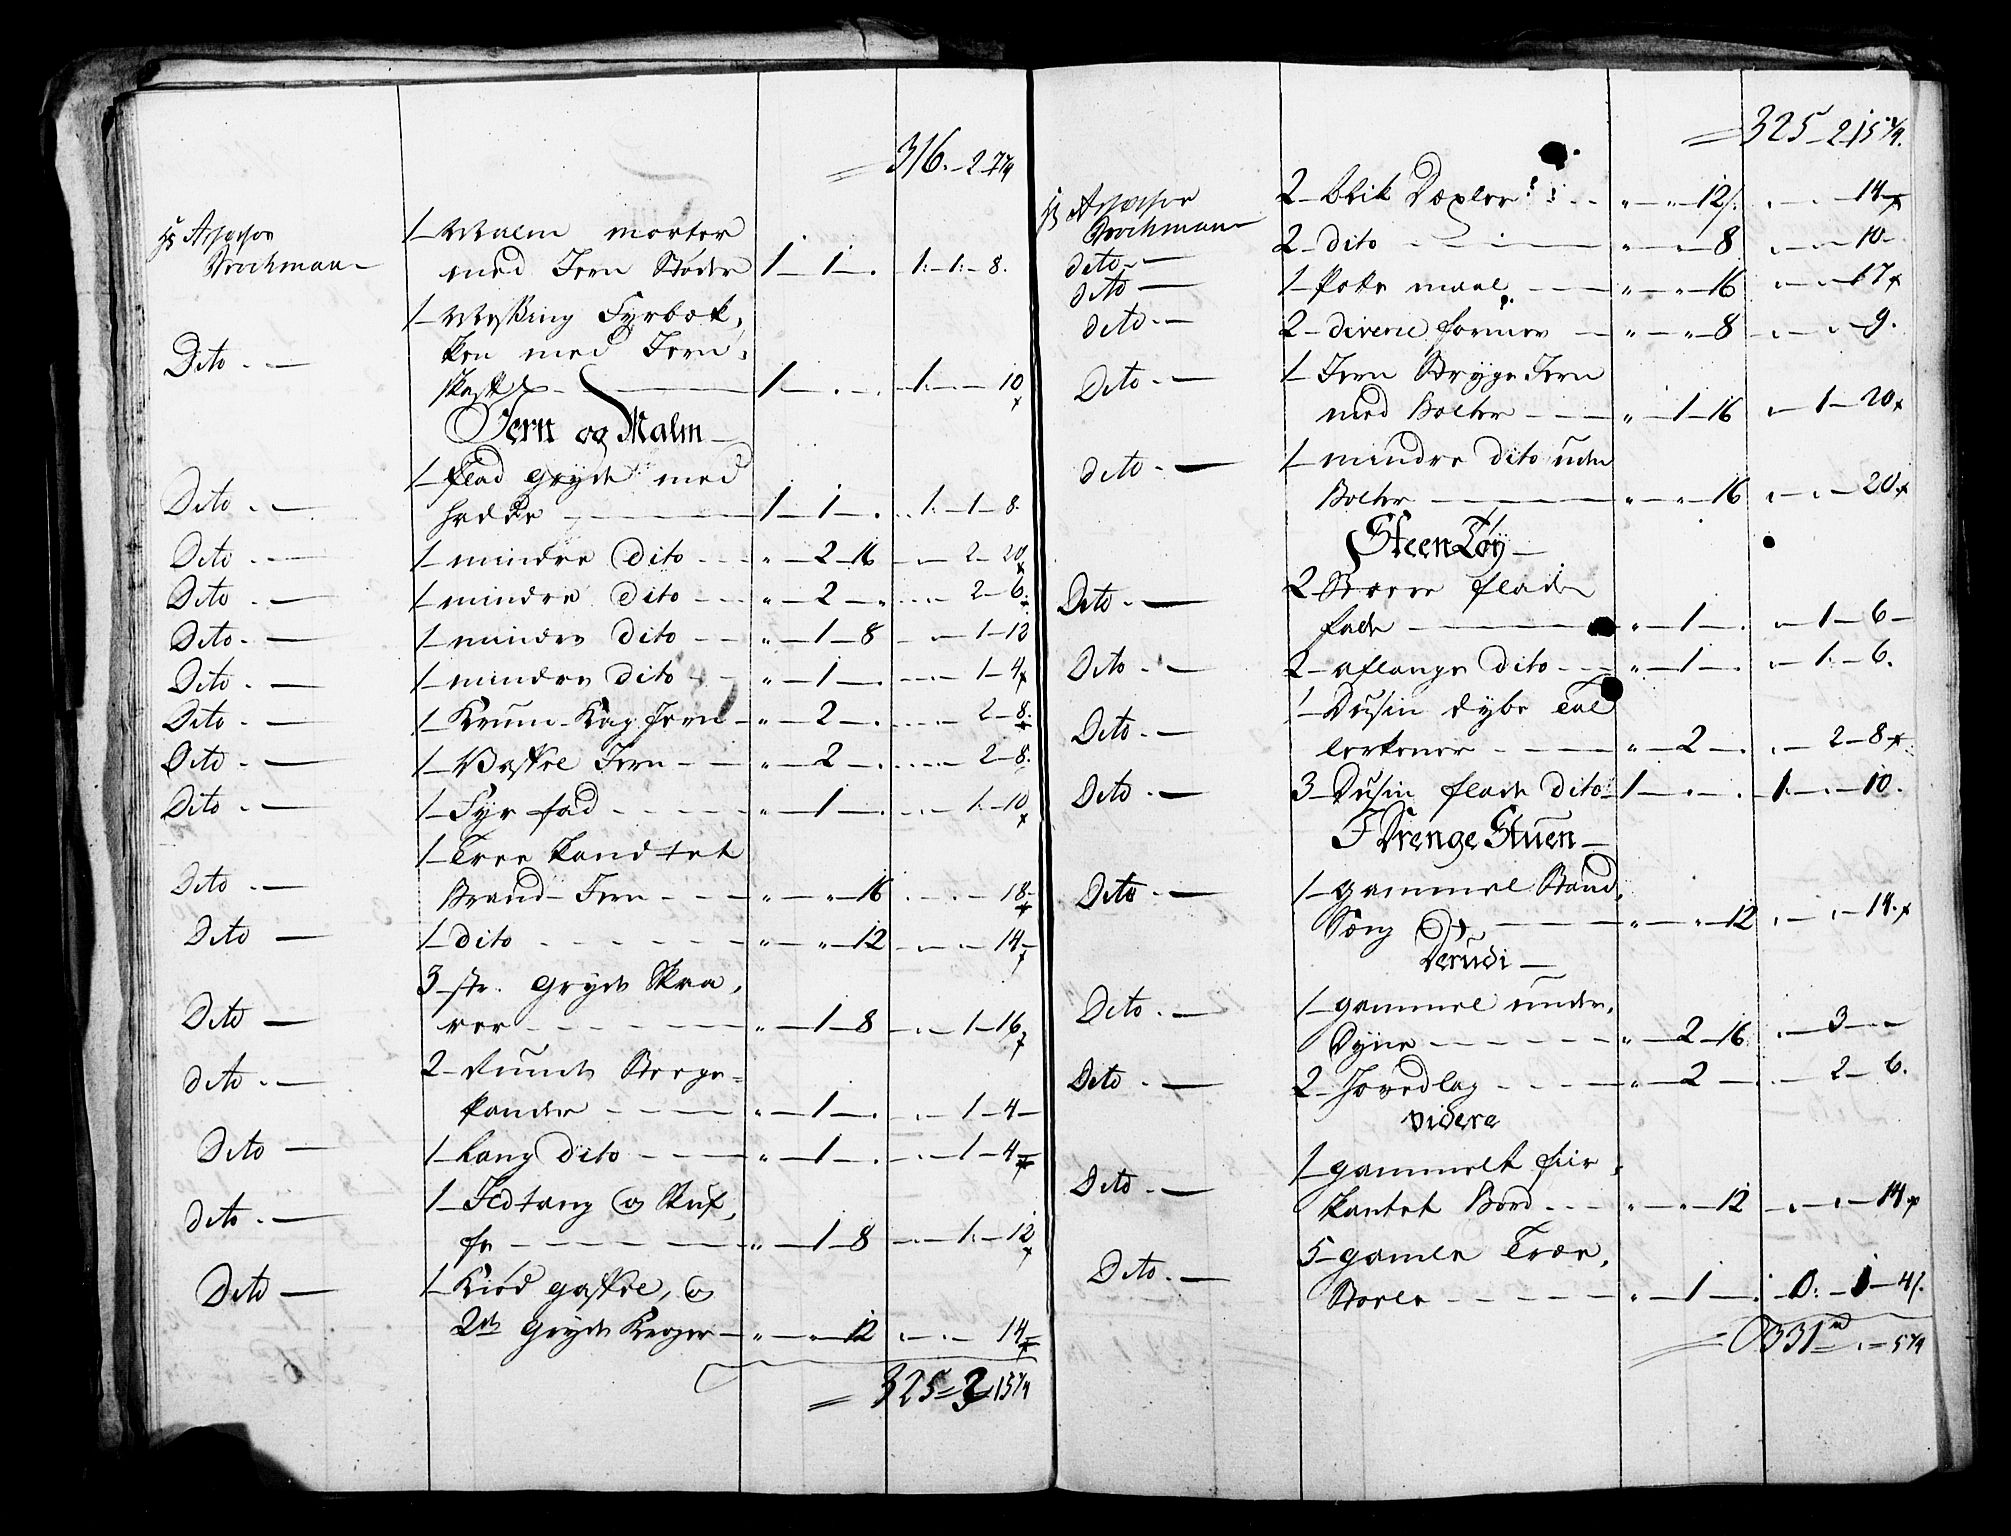 = 316. - 2 - 7 1/4
Hr Assessor 1 - Malm morter
Brochmann - med Jern Støder 1 - 1 - . 1: - 1: - 8.
1 - Messing Fyrbæk,
Dito - ken med Jern,
skaft - 1 - . - . 1: - - 10
Jern og Malm -
1 - flad gryde med
Dito - hadde - 1 - 1 - . 1: - 1 - 8.
Dito - 1 - mindre Dito - " - 2 - 16 - 2 - 20
Dito - 1 - mindre Dito - " - 2 - " 2 - 6.
Dito - 1 - mindre Dito - " - 1 - 8 - 1 - 12
Dito - 1 - mindre Dito - " - 1 - . 1 - 4
Dito - 1 - Krum-Kag Jern - " - 2 - . 2 - 8.
Dito - 1 - Vaffel Jern - " - 2 - . 2 - 8.
Dito - 1 - Fyr fad - " - 1 - . 1: - 10
1 - Tree kandtet
Dito - Brand-Jern - " - " 16 - 18 -
Dito - 1 - dito - " - " 12 - 14 -
3 - st. Gryde Skra,
Dito - ver - " - 1 - 8 - 1 - 16
2 - Runde Stege-
dito - pander - " - 1 - . 1 - 4 -
Dito - 1 - Lang Dito - " - 1 - . 1 - 4
1 - Ildtang og Skuf,
dito - fe - " - 1 - 8 - 1: - 12
1 - Kiød gaffel, og
Dito - 2de Gryde Kroger - " - " 12 - 14
= 325 = 2 - 15 1/4
= 325 - 2 - 15 1/4.
Hr Assessor 2 - blik Dexler - " - " 12 . - 14
Brochmann
dito - 2 - dito - " - " 8 . - 10 -
dito - 1 - Potte maal - " - " 16 - 17
dito - 2 - diverse former - " - " 8 - 9.
Dito - 1 - Jern Stryge Jern
med Bolter - " - 1 - 16 - 1 - 20
dito - 1 - mindre dito uden
Bolter - " - " 16 - 20
Steen Tøy -
2 - Store flade
Dito - fade - " - 1 - . 1 - 6 -
Dito - 2 - aflange Dito - " - 1 - . 1: - 6.
1 - Dusin dybe Tal
Dito - lerkener - " - 2 - . 2 - 8
Dito - 3 - Dusin flade Dito 1 - . - . 1: - . - 10.
I Drenge Stuen -
Dito - 1 - gammel Stand,
Sæng - " - " 12 - 14.
Derudi -
Dito - 1 - gammel under,
Dyne - " - 2 - 16 - 3 -
Dito - 2 - Hovedlag - " - 2 - . 2 - 6.
videre
1 - gammelt fiir,
Dito - kantet Bord - " - " 12 - 14
5 - gamle Træe,
Dito - Stoele - " - 1 - . 0: - 1 - 4
= 331 rd - " - 5 1/4